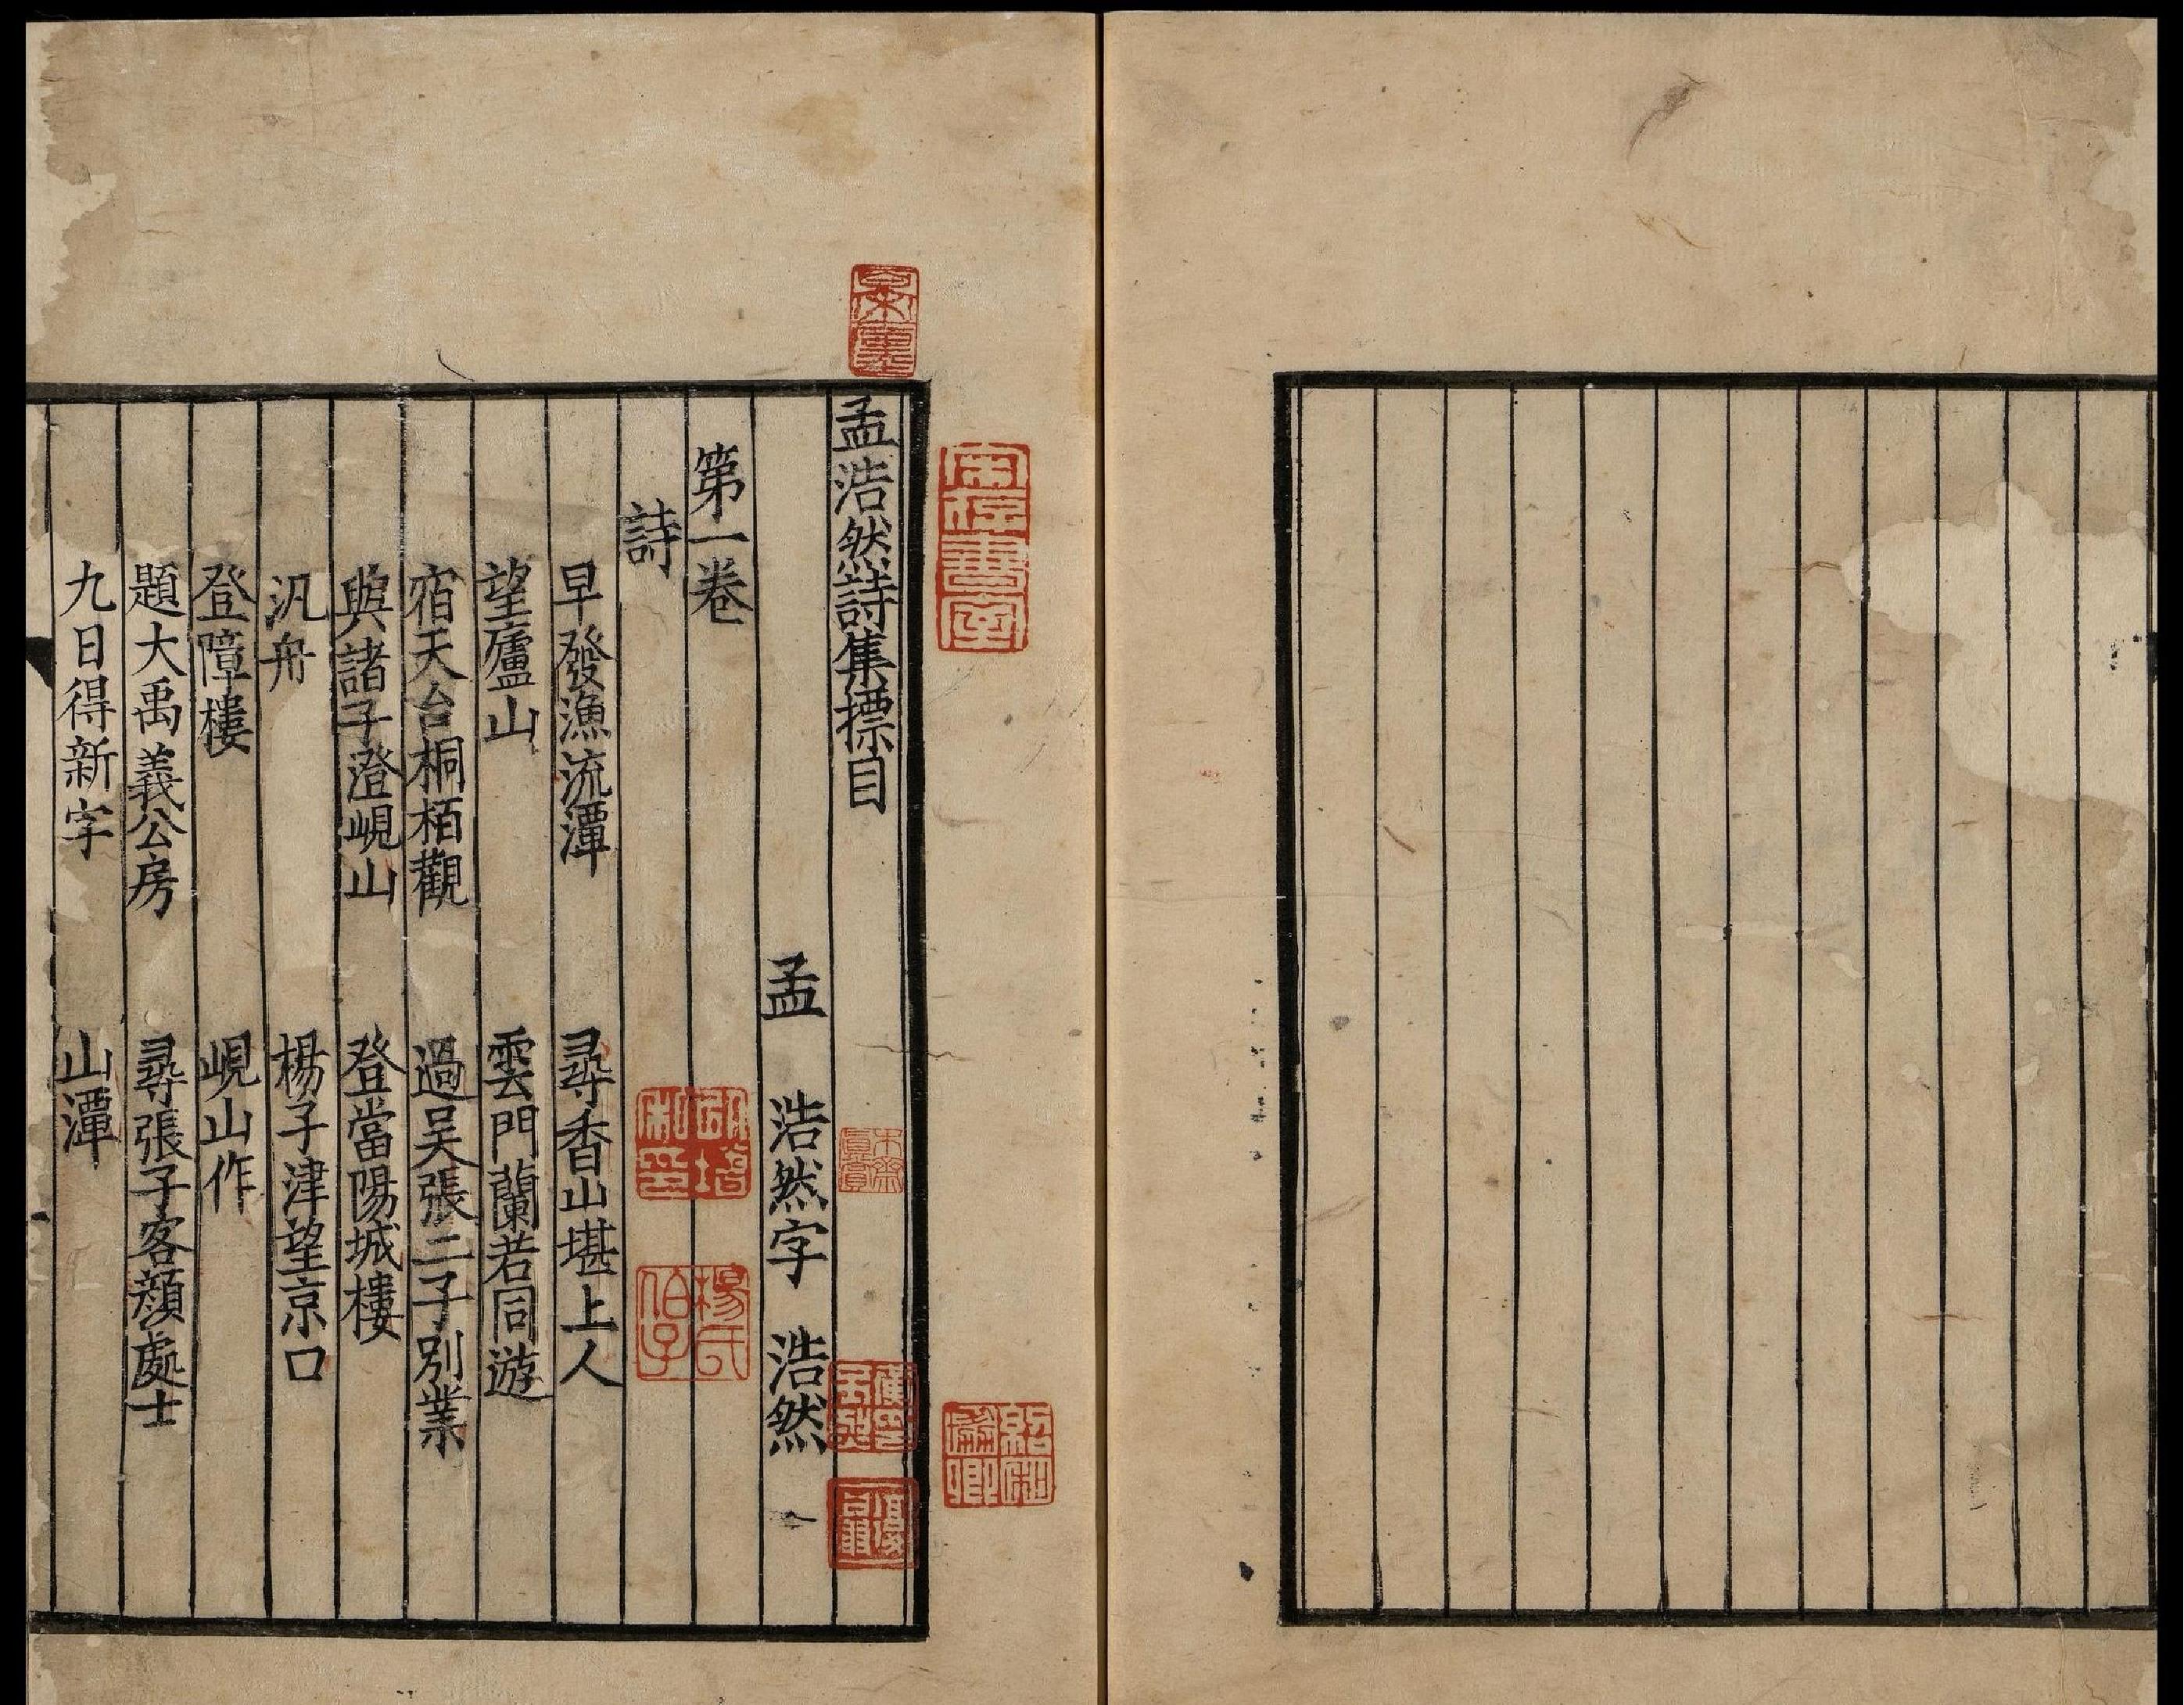 孟浩然詩集摽目
孟 浩然字 浩然
第一卷
詩
早發漁流潭 尋香山堪上人
望廬山 雲門蘭若同遊
宿天台桐栢觀 過吴張二子別業
與諸子澄峴山 登當陽城樓
汎舟 楊子津望京口
登障樓 峴山作
題大禹義公房 尋張子客顔處士
九日得新字 山潭
宋存書室
楊氏
伯子
紹和